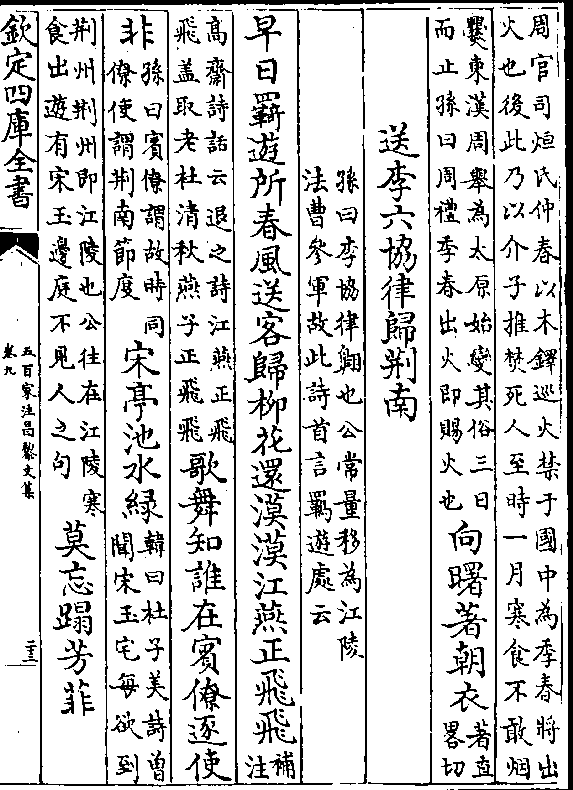 周官司烜氏仲春以木鐸巡火禁于國中為季春將出
火也後此乃以介子推焚死人至時一月寒食不敢烟
爨東漢周舉為太原始變其俗三日
而止孫曰周禮季春出火即賜火也
向曙著朝衣
著直
畧切
送李六協律歸荆南
孫曰李協律翺也公常量移為江陵
法曹參軍故此詩首言羈遊處云
早日羈遊所春風送客歸柳花還漠漠江燕正飛飛
補
注
高齋詩話云退之詩江燕正飛
飛盖取老杜清秋燕子正飛飛
歌舞知誰在賓僚逐使
非
孫曰賓僚謂故時同
僚使謂荆南節度
宋亭池水緑
韓曰杜子美詩曾
聞宋玉宅每欲到
荆州荆州即江陵也公往在江陵寒
食出遊有宋玉邊庭不見人之句
莫忘蹋芳菲
欽定四庫全書
五百家注昌黎文集
卷九
二十三